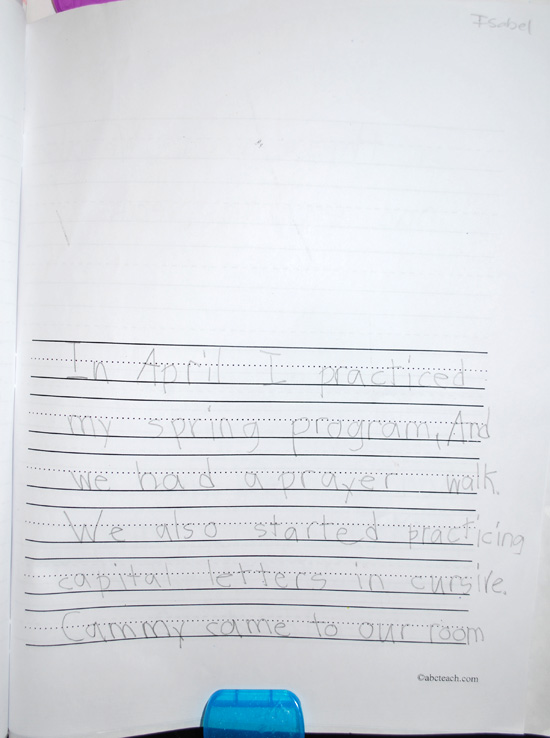 Isabel
In April I practiced
my spring program, And
we had a prayer walk.
We also started practicing
capital letters in cursive.
Cammy came to our room
©abcteach.com